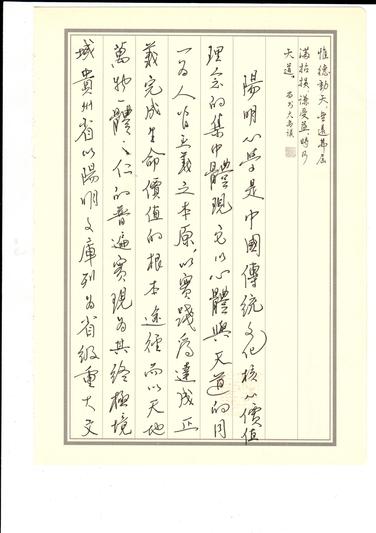 惟德動天,無遠弗屆
滿招損,謙受益,時乃
天道。尚書大禹謨
陽明心學是中國傳統文化核心價值
理念的集中體現 它以心體與天道的同
一為人義之本原,以實踐為達成正
義完成生命價值的根本途徑 而以天地
萬物一體之仁的普遍實現為其終極境
域 貴州省以陽明文庫列為省級重大文